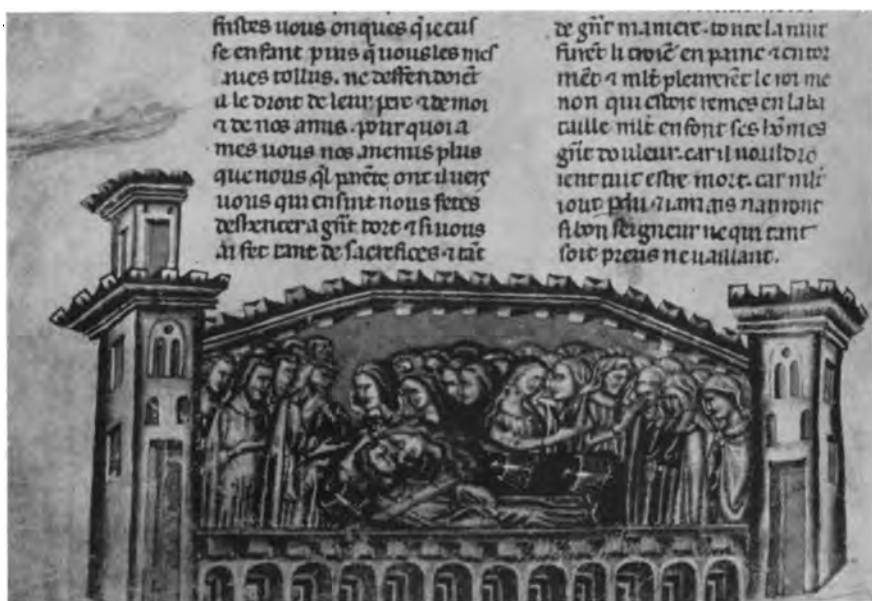 fristes uous onques q̃ ie eus
se enfant puis q̃ uous les mes
aues tollus. ne deffendoiēt
il le droit de leur pere ⁊ de moi
⁊ de nos amis. pour quoi a
mes uous nos anemis plus
que nous q̃l parēte ont il uers
uous qui ensint nous fetes
desheriter a gñt tort ⁊ si uous
ai fet tant de sacrefices ⁊ tāt
de gñt maniere. toute la nuit
furēt li troiē en paine ⁊ en tor
mēt ⁊ ml̃t pleurerēt le roi me
non qui estoit remes en la ba
taille ml̃t en font ses hōmes
gñt douleur. car il uouldro
ient tuit estre mort. car ml̃t
iout pdu ⁊ iamais nauront
si bon seigneur ne qui tant
soit preus ne uaillant.